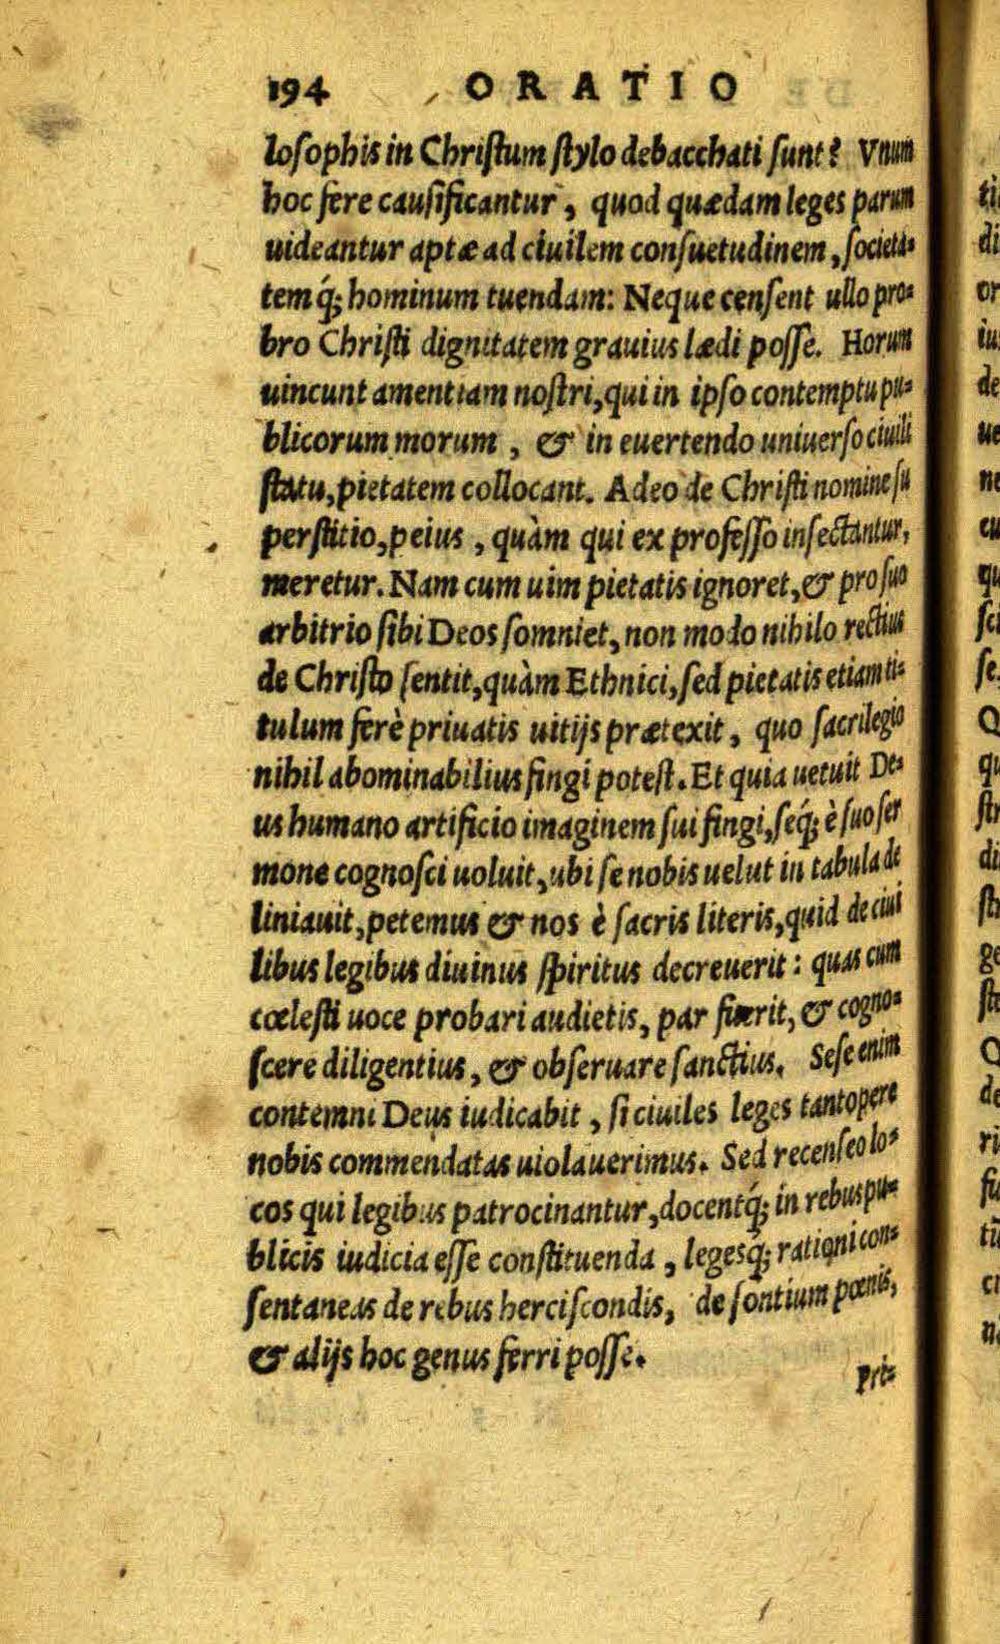 194 ORATIO
losophis in Christum stylo debacchati sunt? Vnum
hoc fere causificantur, quod quædam leges parum
uideantur aptæ ad ciuilem consuetudinem, societa=
temq́; hominum tuendam: Neque censent ullo pro=
bro Christi dignitatem grauius lædi posse. Horum
uincunt amentiam nostri, qui in ipso contemptu pu=
blicorum morum, & in euertendo uniuerso ciuili
statu, pietatem collocant. Adeo de Christi nomine su
perstitio, peius, quàm qui ex professo insectantur,
meretur. Nam cum uim pietatis ignoret, & pro suo
arbitrio sibi Deos somniet, non modo nihilo rectius
de Christo sentit, quàm Ethnici, sed pietatis etiam ti=
tulum ferè priuatis uitijs prætexit, quo sacrilegio
nihil abominabilius fingi potest. Et quia uetuit De=
us humano artificio imaginem sui fingi, seq́; è suo ser
mone cognosci uoluit, ubi se nobis uelut in tabula de
liniauit, petemus & nos è sacris literis, quid de ciui
libus legibus diuinus spiritus decreuerit: quas cum
cœlesti uoce probari audietis, par fuerit, & cogno=
scere diligentius, & obseruare sanctius. Sese enim
contemni Deus iudicabit, si ciuiles leges tantopere
nobis commendatas uiolauerimus. Sed recenseo lo=
cos qui legibus patrocinantur, docentq́; in rebus pu=
blicis iudicia esse constituenda, legesq́; rationi con=
sentaneas de rebus herciscondis, de sontium pœnis,
& alijs hoc genus ferri posse.
Pri=